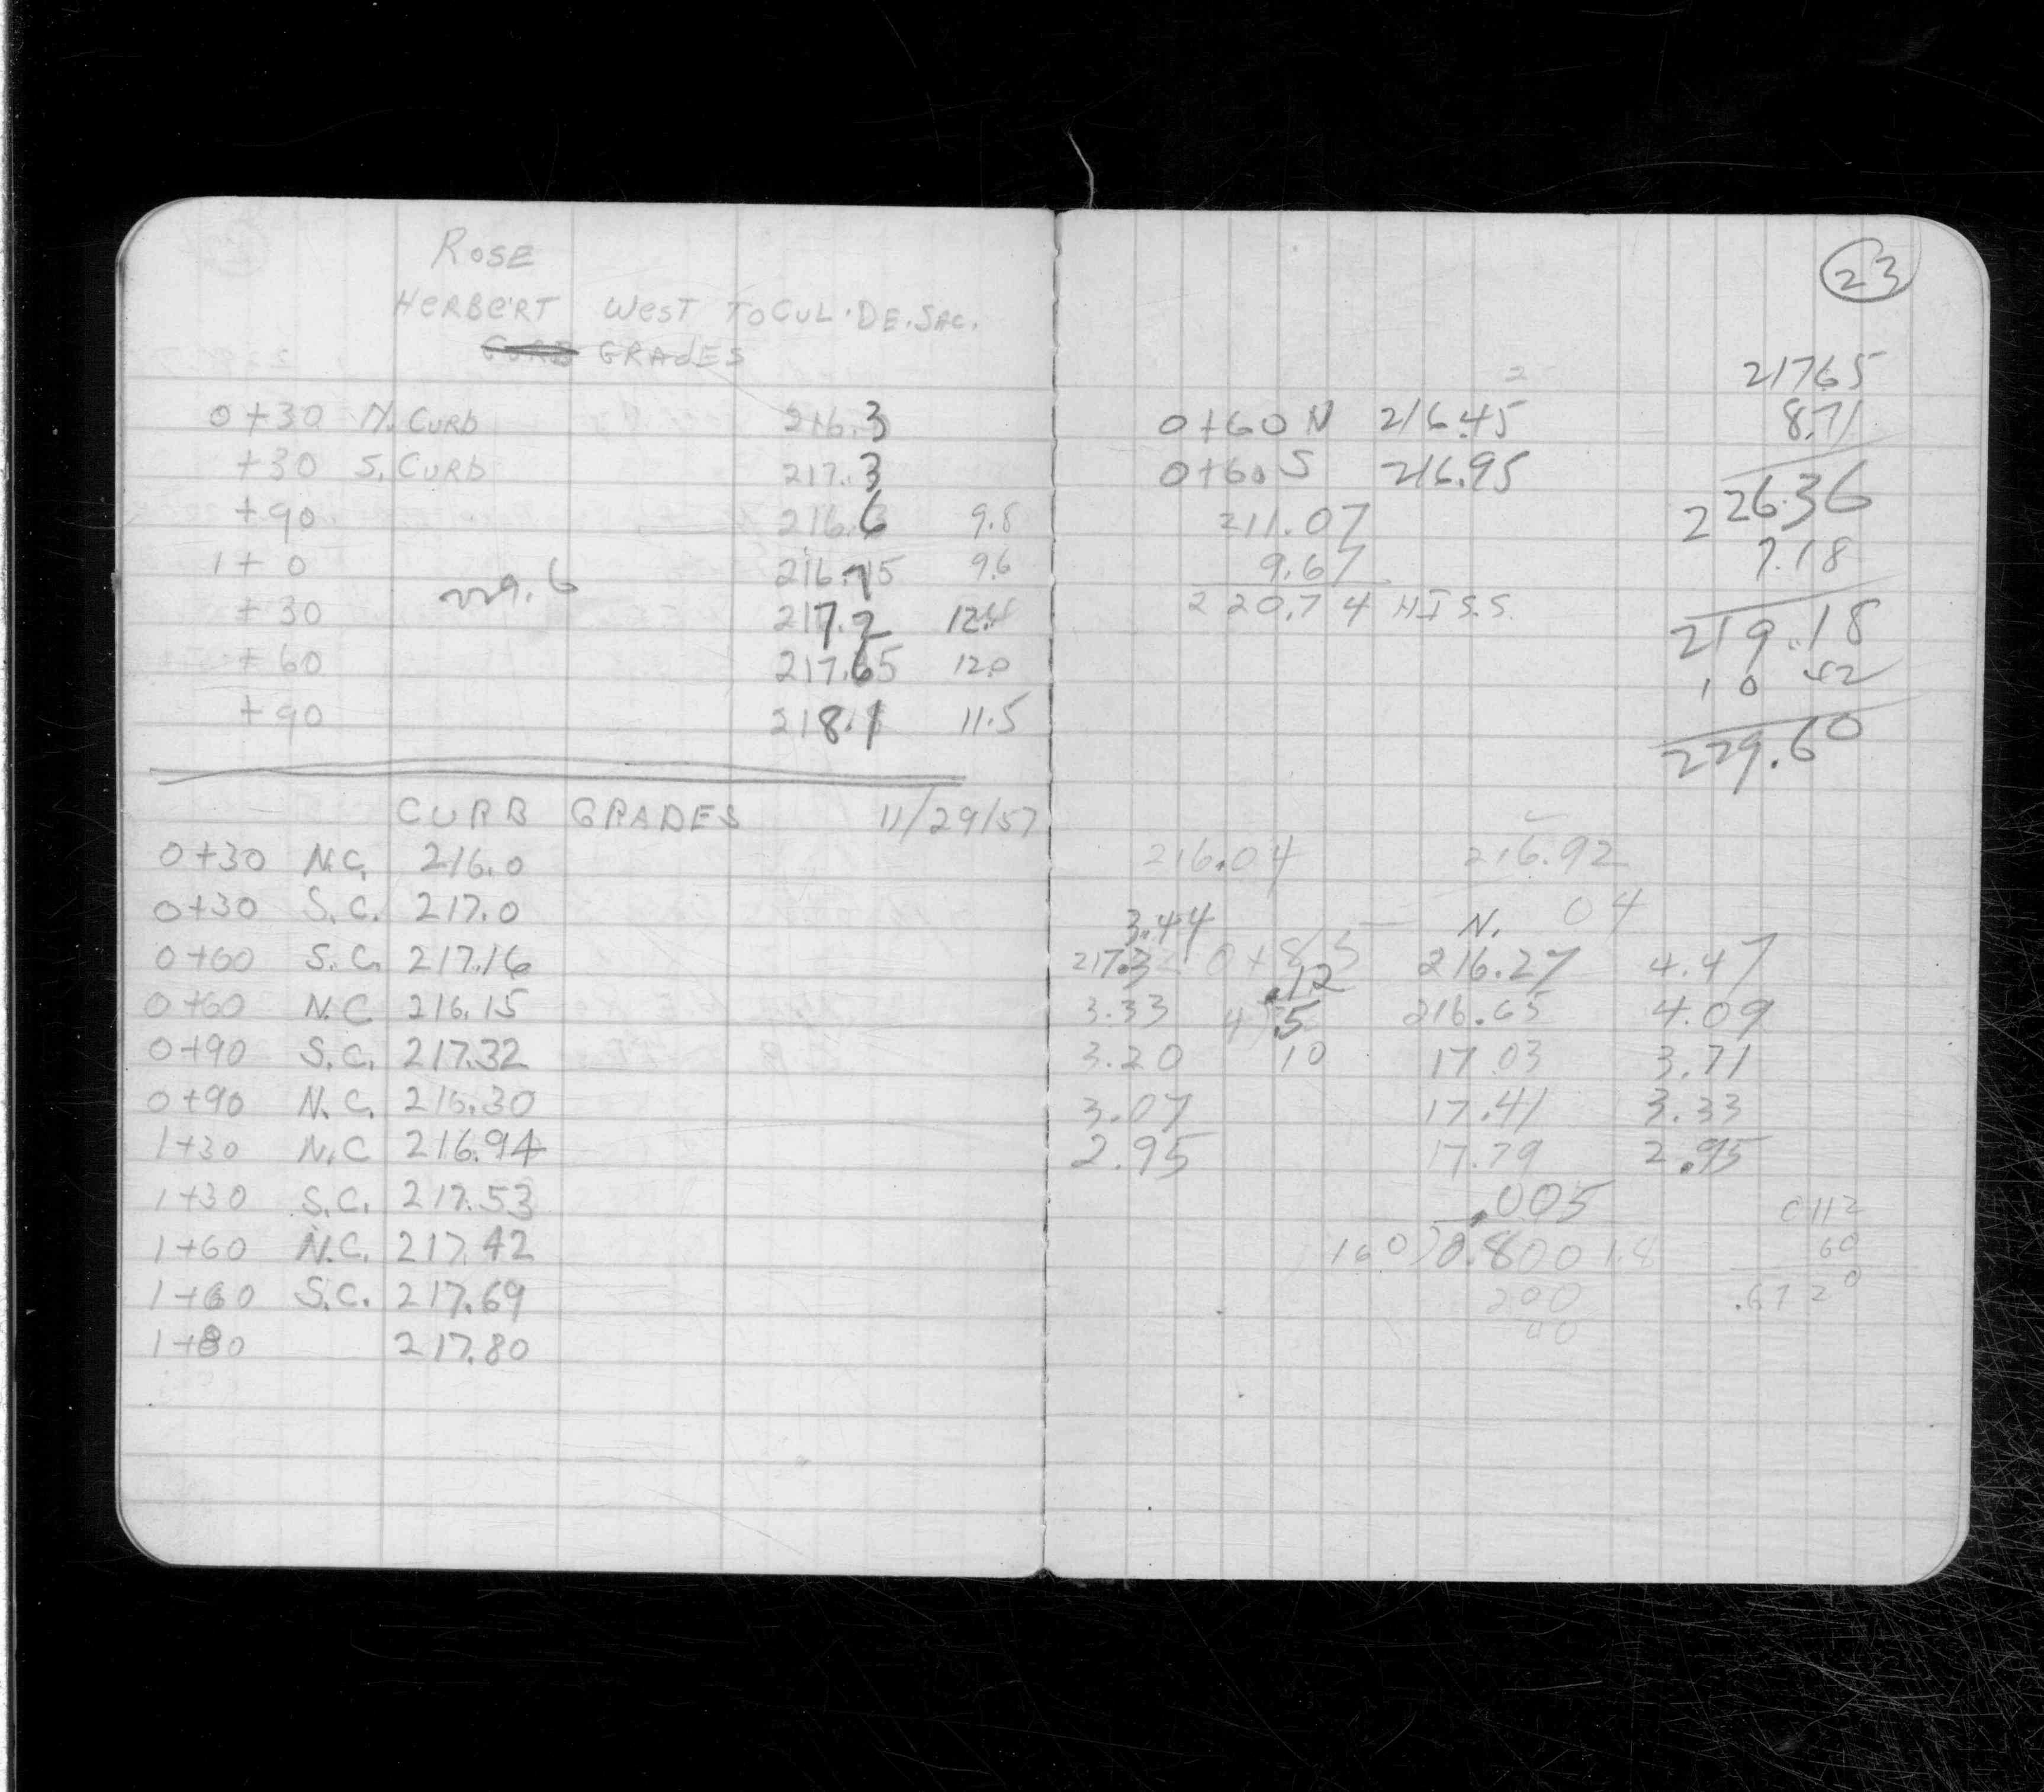 ROSE
HERBERT WEST TO CUL.DE.SAC.
CURB GRADES
0+30 N. CURB 216.3
+30 S. CURB 217.3
+90 216.6 9.8
1+0 216.75 9.6
229.6
+30 217.2 12.4
+60 217.65 12.0
+90 218.1 11.5
CURB GRADES 11/29/57
0+30 N.C. 216.0
0+30 S.C. 217.0
0+60 S.C. 217.16
0+60 N.C 216.15
0+90 S.C. 217.32
0+90 N.C. 216.30
1+30 N.C 216.94
1+30 S.C. 217.53
1+60 N.C. 217.42
1+60 S.C. 217.69
1+80 217.80
23
2
0+60 N 216.45
0+60 S 216.95
211.07
9.67
220.74 HI S.S.
21765
8.71
226.36
7.18
219.18
10 42
229.60
216.04 216.92
04
3.44 N.
217.3 0+85 216.27 4.47
.12
3.33 4)5 216.65 4.09
3.20 10 17.03 3.71
3.07 17.41 3.33
2.95 17.79 2.95
.005 0112
160)0.800 1.8 60
200 .6720
00